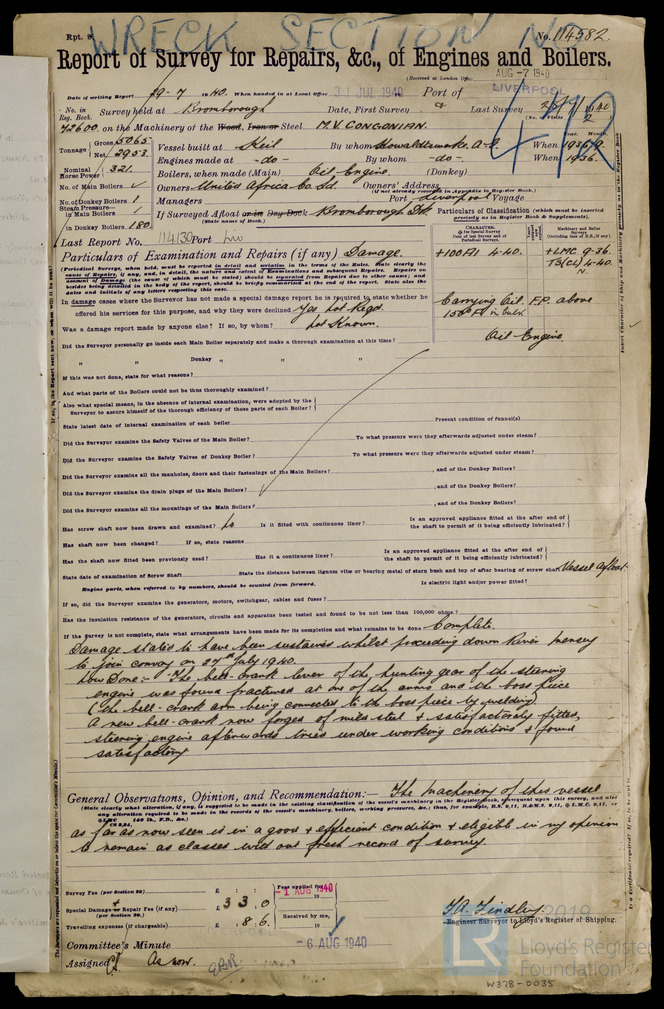 WRECK SECTION No
Rpt. 9. No. 114582
Report of Survey for Repairs, &c., of Engines and Boilers.
(Received at London Office AUG -7 1940
Date of writing Report 29-7 1940. When handed in at Local Office 31 JUL 1940 Port of LIVERPOOL
No. in Reg. Book. Survey held at Bromborough Date, First Survey & Last Survey 1940
(No. of Visits 2
72600 on the Machinery of the Wood, Iron or Steel M.V. CONGONIAN.
410
Tonnage Gross 5065 Net 2953
Vessel built at Kiel By whom Howaldtswerke A.G. When 1936/9
Year. Month.
Engines made at -do- By whom -do- When 1936.
Nominal Horse Power 321.
Boilers, when made (Main) Oil Engine (Donkey)
No. of Main Boilers ✓
Owners United Africa Co Ld. Owners' Address
(if not already recorded in Appendix to Register Book.)
No. of Donkey Boilers 1
Managers Port Liverpool Voyage
Steam Pressure— in Main Boilers
If Surveyed Afloat or in Dry Dock Bromborough Dk.
(State name of Dock.)
in Donkey Boilers 180.
Particulars of Classification (which must be inserted precisely as in Register Book & Supplements).
Last Report No. 114130 Port Liv
Particulars of Examination and Repairs (if any) Damage.
+100A1 4.40. +LMC 9.36
TS(CL) 4.40
N.
Carrying Oil. F.P. above
150°F in bulk
Oil Engine
In damage cases where the Surveyor has not made a special damage report he is required to state whether he
offered his services for this purpose, and why they were declined Yes Not Reqd.
Was a damage report made by anyone else? If so, by whom? Not Known.
Did the Surveyor personally go inside each Main Boiler separately and make a thorough examination at this time?
" " Donkey " " "
If this was not done, state for what reasons?
And what parts of the Boilers could not be thus thoroughly examined?
Also what special means, in the absence of internal examination, were adopted by the
Surveyor to assure himself of the thorough efficiency of those parts of each Boiler?
State latest date of internal examination of each boiler Present condition of funnel(s)
Did the Surveyor examine the Safety Valves of the Main Boiler? To what pressure were they afterwards adjusted under steam?
Did the Surveyor examine the Safety Valves of Donkey Boiler? To what pressure were they afterwards adjusted under steam?
Did the Surveyor examine all the manholes, doors and their fastenings of the Main Boilers? , and of the Donkey Boilers?
Did the Surveyor examine the drain plugs of the Main Boilers? , and of the Donkey Boilers?
Did the Surveyor examine all the mountings of the Main Boilers? , and of the Donkey Boilers?
Has screw shaft now been drawn and examined? No Is it fitted with continuous liner? Is an approved appliance fitted at the after end of the shaft to permit of it being efficiently lubricated?
Has shaft now been changed? If so, state reasons
Has the shaft now fitted been previously used? Has it a continuous liner? Is an approved appliance fitted at the after end of the shaft to permit of it being efficiently lubricated?
State date of examination of Screw Shaft State the distance between lignum vitæ or bearing metal of stern bush and top of after bearing of screw shaft Vessel afloat
Engine parts, when referred to by numbers, should be counted from forward. Is electric light and/or power fitted?
If so, did the Surveyor examine the generators, motors, switchgear, cables and fuses?
Has the insulation resistance of the generators, circuits and apparatus been tested and found to be not less than 100,000 ohms?
If the survey is not complete, state what arrangements have been made for its completion and what remains to be done Complete.
Damage stated to have been sustained whilst proceeding down River Mersey
to join convoy on 27th July 1940.
Now Done:- The bell-crank lever of the hunting gear of the steering
engine was found fractured at one of the arms and the boss piece
(the bell-crank arm being connected to the boss piece by welding).
A new bell-crank now forged of mild steel & satisfactorily fitted,
steering engine afterwards tried under working conditions & found
satisfactory
General Observations, Opinion, and Recommendation:— The machinery of this vessel
as far as now seen is in a good & efficient condition & eligible in my opinion
to remain as classed without fresh record of survey.
Survey Fee (per Section 29) £ : : Fees applied for 1 AUG 1940
Special Damage or Repair Fee (if any) (per Section 29.) £ 3 3 . 0
Received by me,
Travelling expenses (if chargeable) £ . 8 . 6
F.A. Findley
Engineer Surveyor to Lloyd's Register of Shipping.
Committee's Minute - 6 AUG 1940
Assigned As now.
© 2019
LR Lloyd's Register Foundation
W378-0035